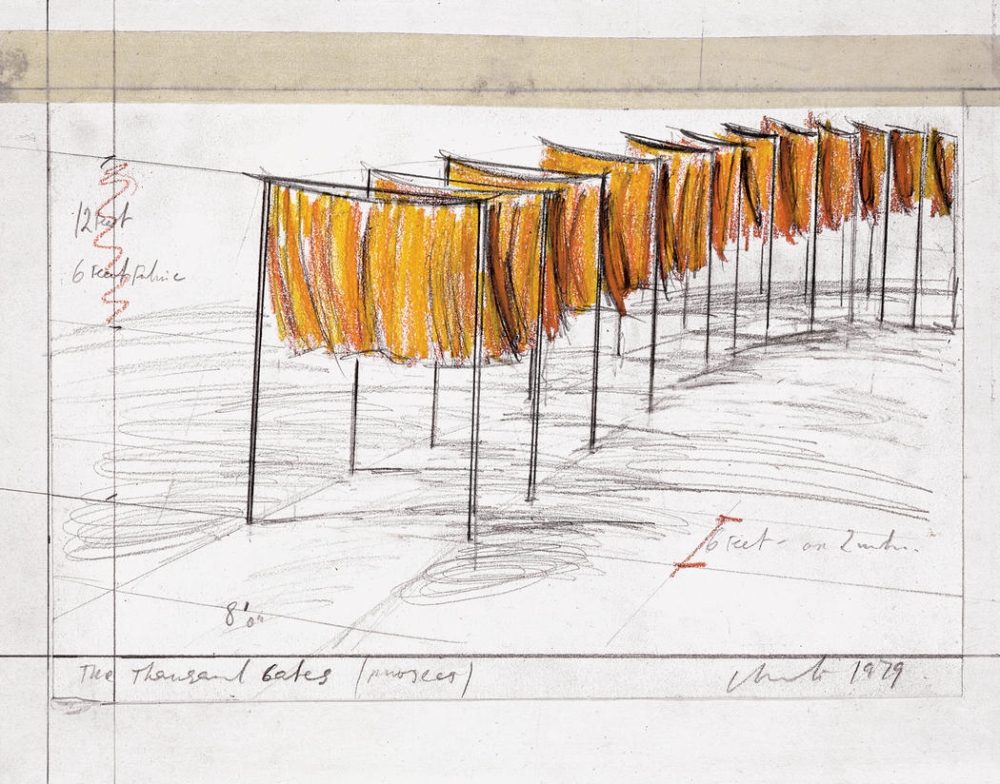 12 feet
6 feet fabric
6 feet - or 2 mtr.
8'0"
The Thousand Gates (project)
Christo 1979